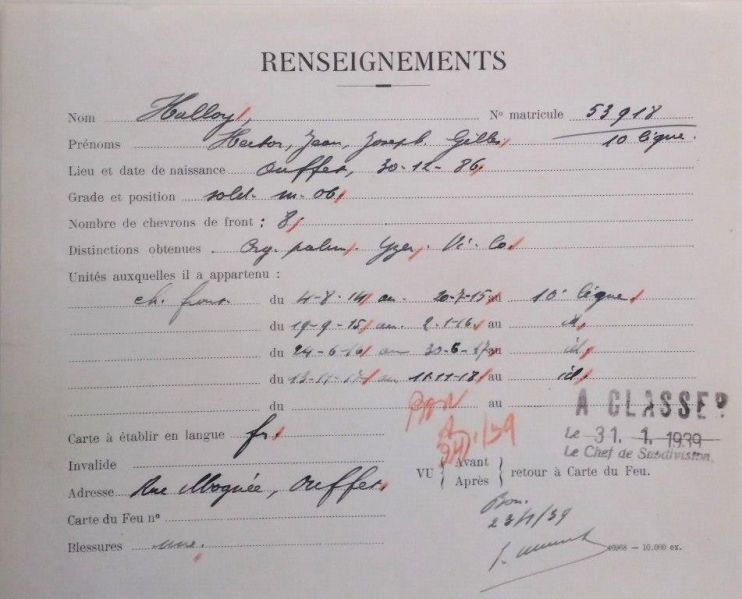 RENSEIGNEMENTS
Nom Halloy, N° matricule 53918
Prénoms Hector, Jean, Joseph, Gilles 10 ligne.
Lieu et date de naissance Ouffet, 30-12-86
Grade et position sold. m. 06
Nombre de chevrons de front : 8
Distinctions obtenues . palm. Yzer. Vi. Co
Unités auxquelles il a appartenu :
ch. front. du 4-8-14 au 20-7-15 au 10e ligne
du 19-9-15 au 2-1-16 au id
du 24-6-16 au 30-6-17 au id
du 13-11-17 au 11-11-18 au id
du au
A CLASSER
Le 31. 1. 1939
Le Chef de Subdivision.
Carte à établir en langue fr
Invalide
VU { Avant Après } retour à Carte du Feu.
Adresse Rue Moquée, Ouffet
Carte du Feu n°
Bon.
23/1/39
Blessures une.
— 10.000 ex.